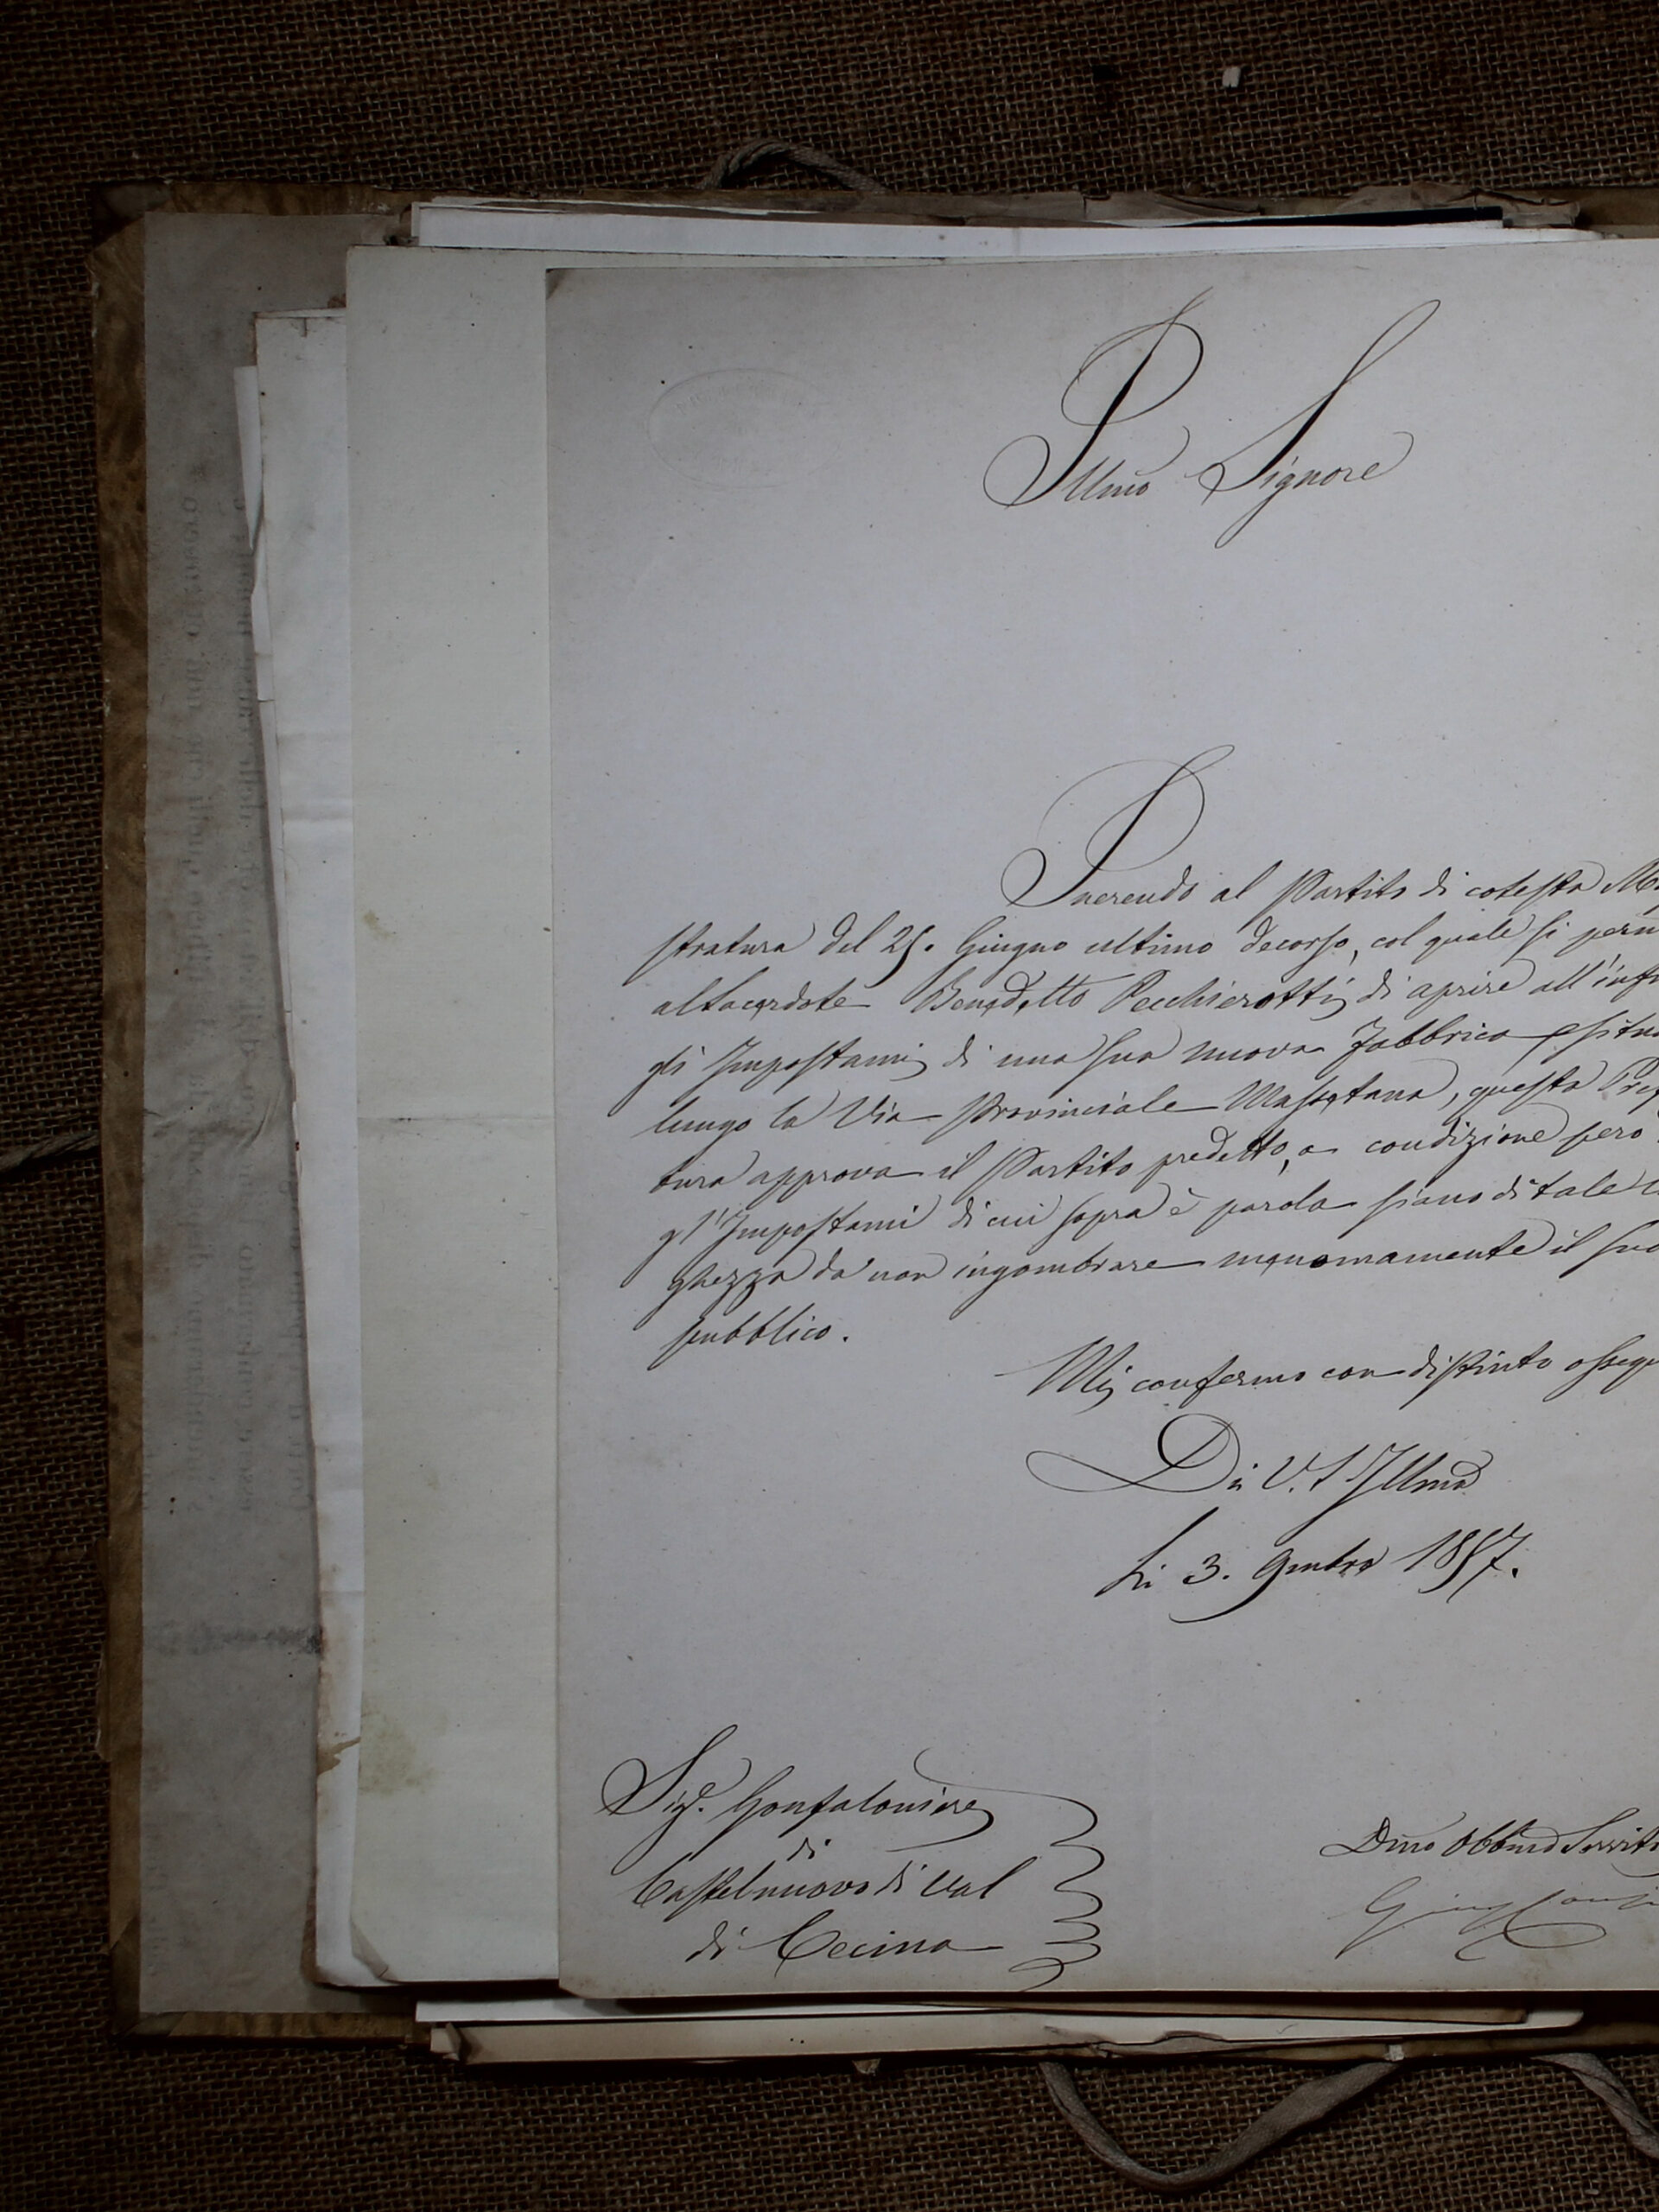 Illmo Signore
Inerendo al Partito di cotesta Ma
stratura del 25. Giugno ultimo decorso, col quale si perm
al Sacerdote Benedetto Pecchierotti di aprire all'infu
gli Impostami di una sua nuova Fabbrica esistn
lungo la Via Provinciale Massetana, questa Pref
tura approva il Partito predetto, a condizione però
gl'Impostami di cui sopra è parola siano di tale l
ghezza da non ingombrare menomamente il suo
pubblico.
Mi confermo con distinto ossequ
Di V.S. Illma
Li 3. 9mbre 1857.
Sigr. Gonfaloniere
di
Castelnuovo di Val
di Cecina
Dmo Obbmo Servit